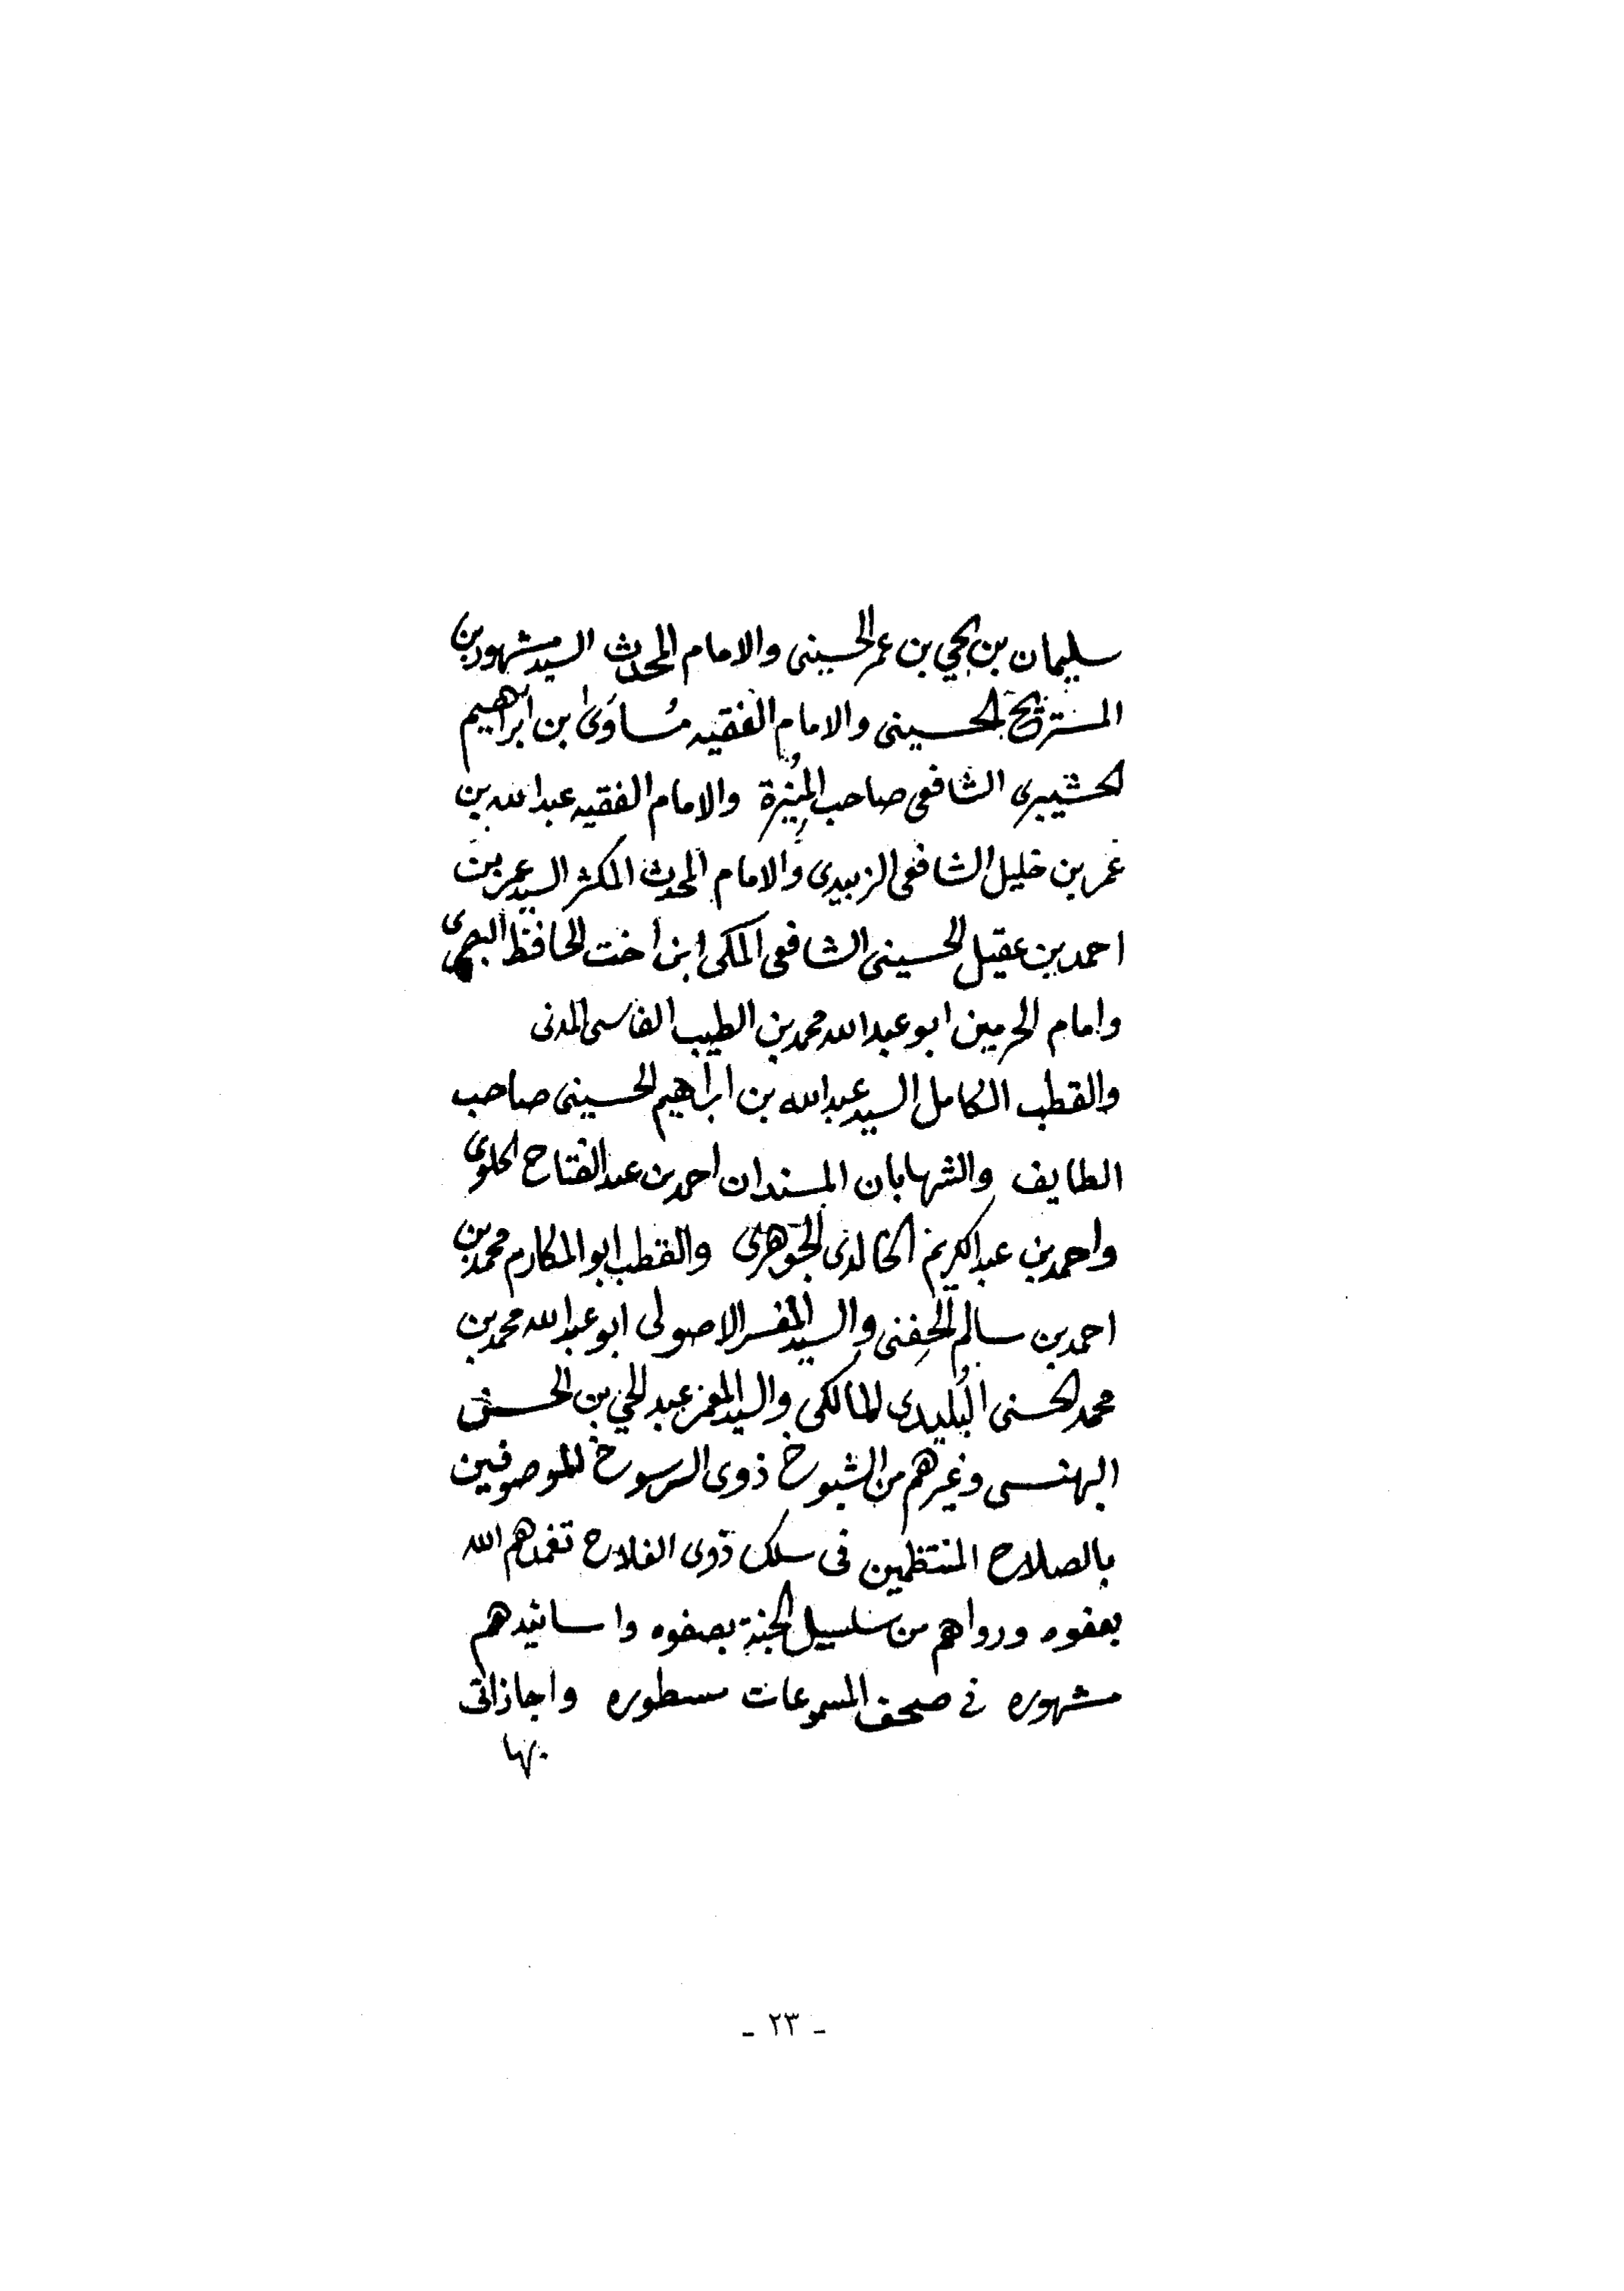 سليمان بن يحيي بن عمر الحسيني والامام المحدث السيد مشهور بن
المستريح الحسيني والامام الفقيه مُساوَى ابن ابراهيم
الحشيبرى الشافعي صاحب المنيرة والامام الفقيه عبد الله بن
عمر بن خليل الشافعي الزبيدى والامام المحدث المكثر السيد عمر بن
احمد بن عقيل الحسيني الشافعي المكى ابن اخت الحافظ البصرى
وامام الحرمين ابو عبد الله محمد بن الطيب الفاسي المدنى
والقطب الكامل السيد عبد الله بن ابراهيم الحسيني صاحب
الطايف والشهابان المسندان احمد بن عبد الفتاح الملوى
واحمد بن عبد الكريم الخالدى الجَوهرى والقطب ابو المكارم محمد بن
احمد بن سالم الحِفنى والسيد المفسر الاصولى ابو عبد الله محمد بن
محمد الحسنى البُليدى المالكى والسيد المعمر عبد الحي بن الحسن
البهنسى وغيرهم من الشيوخ ذوى الرسوخ الموصوفين
بالصلاح المنتظمين فى سلك ذوى الفلاح تغمدهم الله
بعفوه ورواهم من سلسبيل الجنة بصفوه واسانيدهم
مشهوره في صحف المسموعات مسطوره واجازاتى
بها
- ٢٣ -